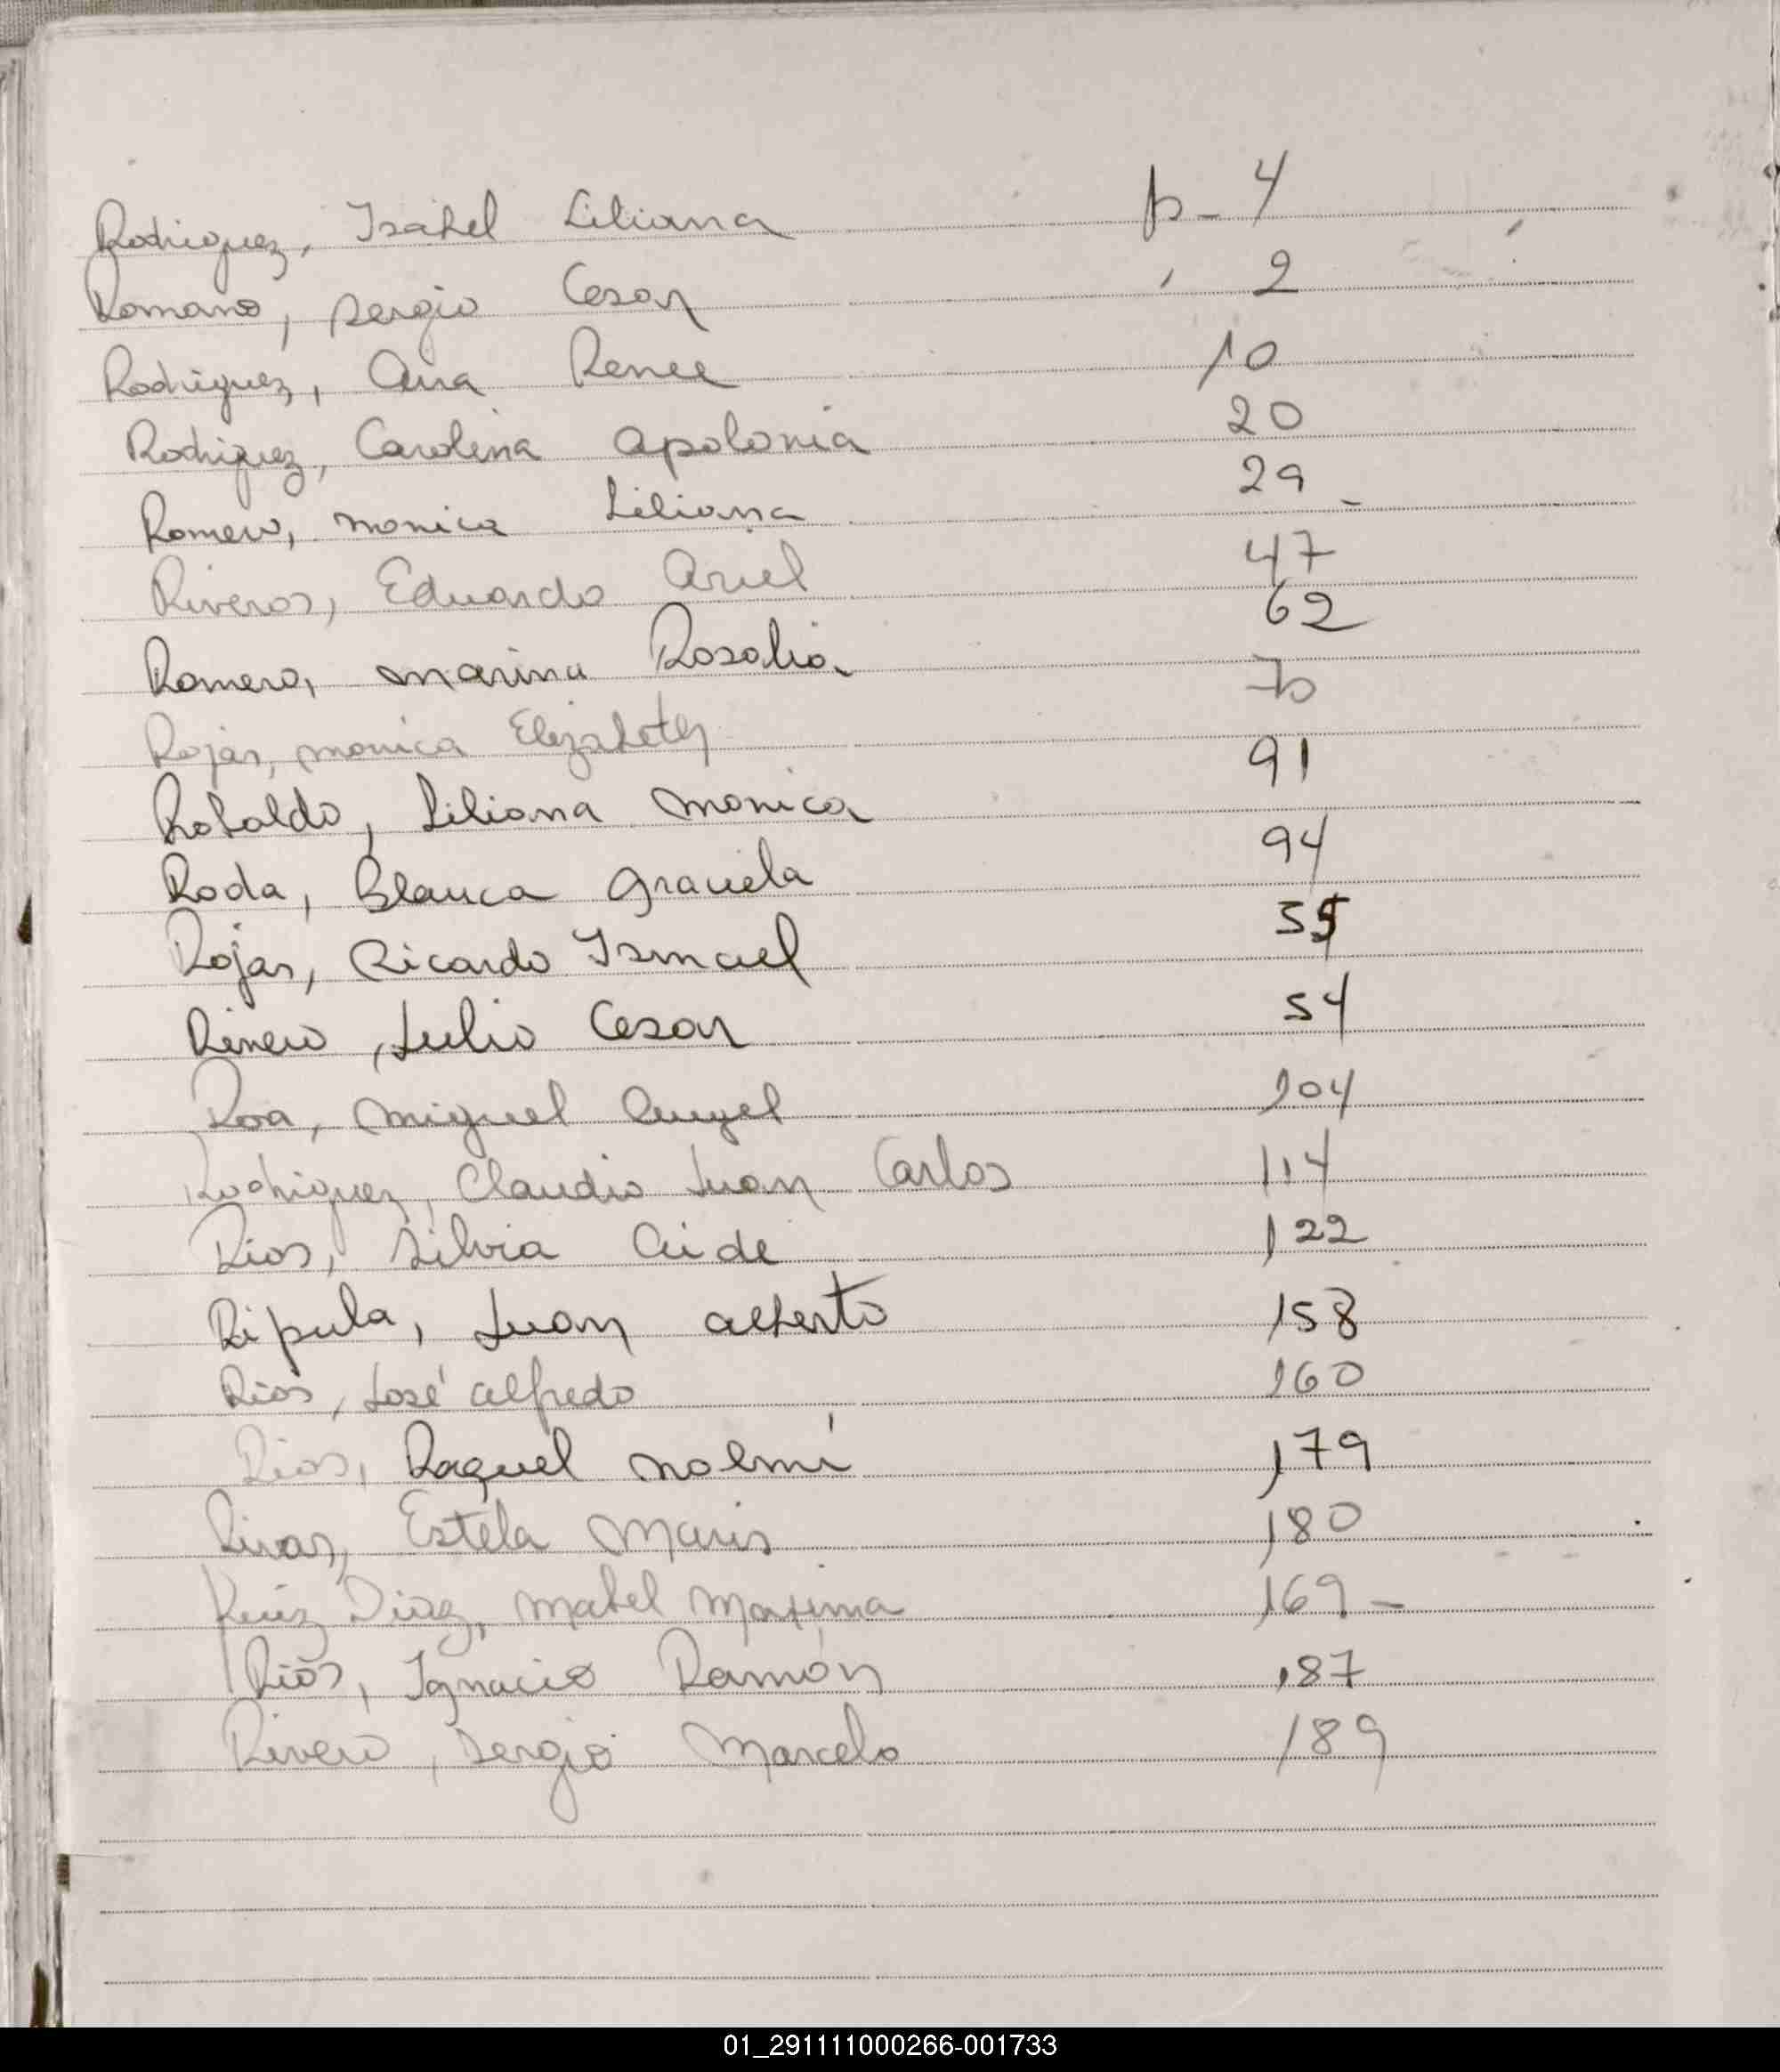 Rodriguez, Isabel Liliana p- 4
Romano, Sergio Cesar 2
Rodriguez, Ana Renee 10
Rodriguez, Carolina Apolonia 20
Romero, Monica Liliana 29 -
Riveros, Eduardo Ariel 47
Romero, Marina Rosalia 62
Rojas, Monica Elizabeth 70
Robaldo, Liliana Monica 91
Roda, Blanca Graciela 94
Rojas, Ricardo Ismael
Julio Cesar 54
Roa, Miguel Angel 104
Rodriguez, Claudio Juan Carlos 114
Rios, Silvia Aide 122
Ripula, Juan Alberto 158
Rios, José Alfredo 160
Rios, Raquel Noemí 179
Rivas, Estela Maris 180
Ruiz Diaz, Mabel Maxima 169 -
Rios, Ignacio Ramón 187
Rivero, Sergio Marcelo 189
01_291111000266-001733